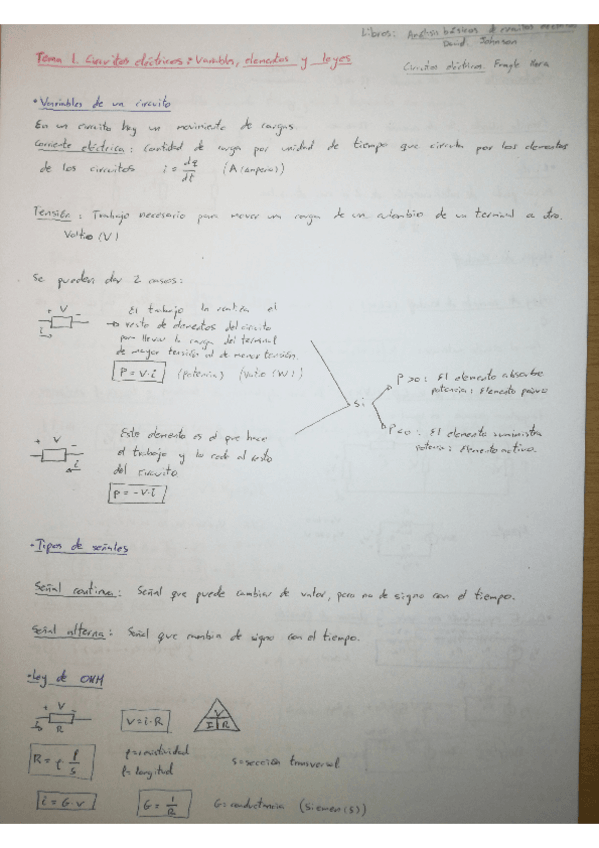 Libros: Análisis básicos de circuitos eléctricos
David Johnson
Tema 1. Circuitos eléctricos: Variables, elementos y leyes
Circuitos eléctricos.
·Variables de un circuito
En un circuito hay un movimiento de cargas.
Corriente eléctrica: Cantidad de carga por unidad de tiempo que circula por los elementos
de los circuitos i = dq/dt (A (amperios))
Tensión: Trabajo necesario para mover una carga de un de un terminal a otro.
Voltio (V)
Se pueden dar 2 casos:
+ V -
i
El trabajo lo realiza el
resto de elementos del circuito
para llevar la carga del terminal
de mayor tensión al de menor tensión.
P = V·i (potencia) (Vatio (W))
si
P>0: El elemento absorbe
potencia: Elemento pasivo
P<0: El elemento suministra
potencia: Elemento activo.
+ V -
i
Este elemento es el que hace
el trabajo y lo cede al resto
del circuito.
P = -V·i
·Tipos de señales
Señal continua: Señal que puede cambiar de valor, pero no de signo con el tiempo.
Señal alterna: Señal que cambia de signo con el tiempo.
·Ley de OHM
+ V -
i R
V = i·R
V I R
R = ρ l/s
ρ=resistividad
l=longitud
s=sección transversal
i = G·V
G = 1/R
G=conductancia (Siemen(s))